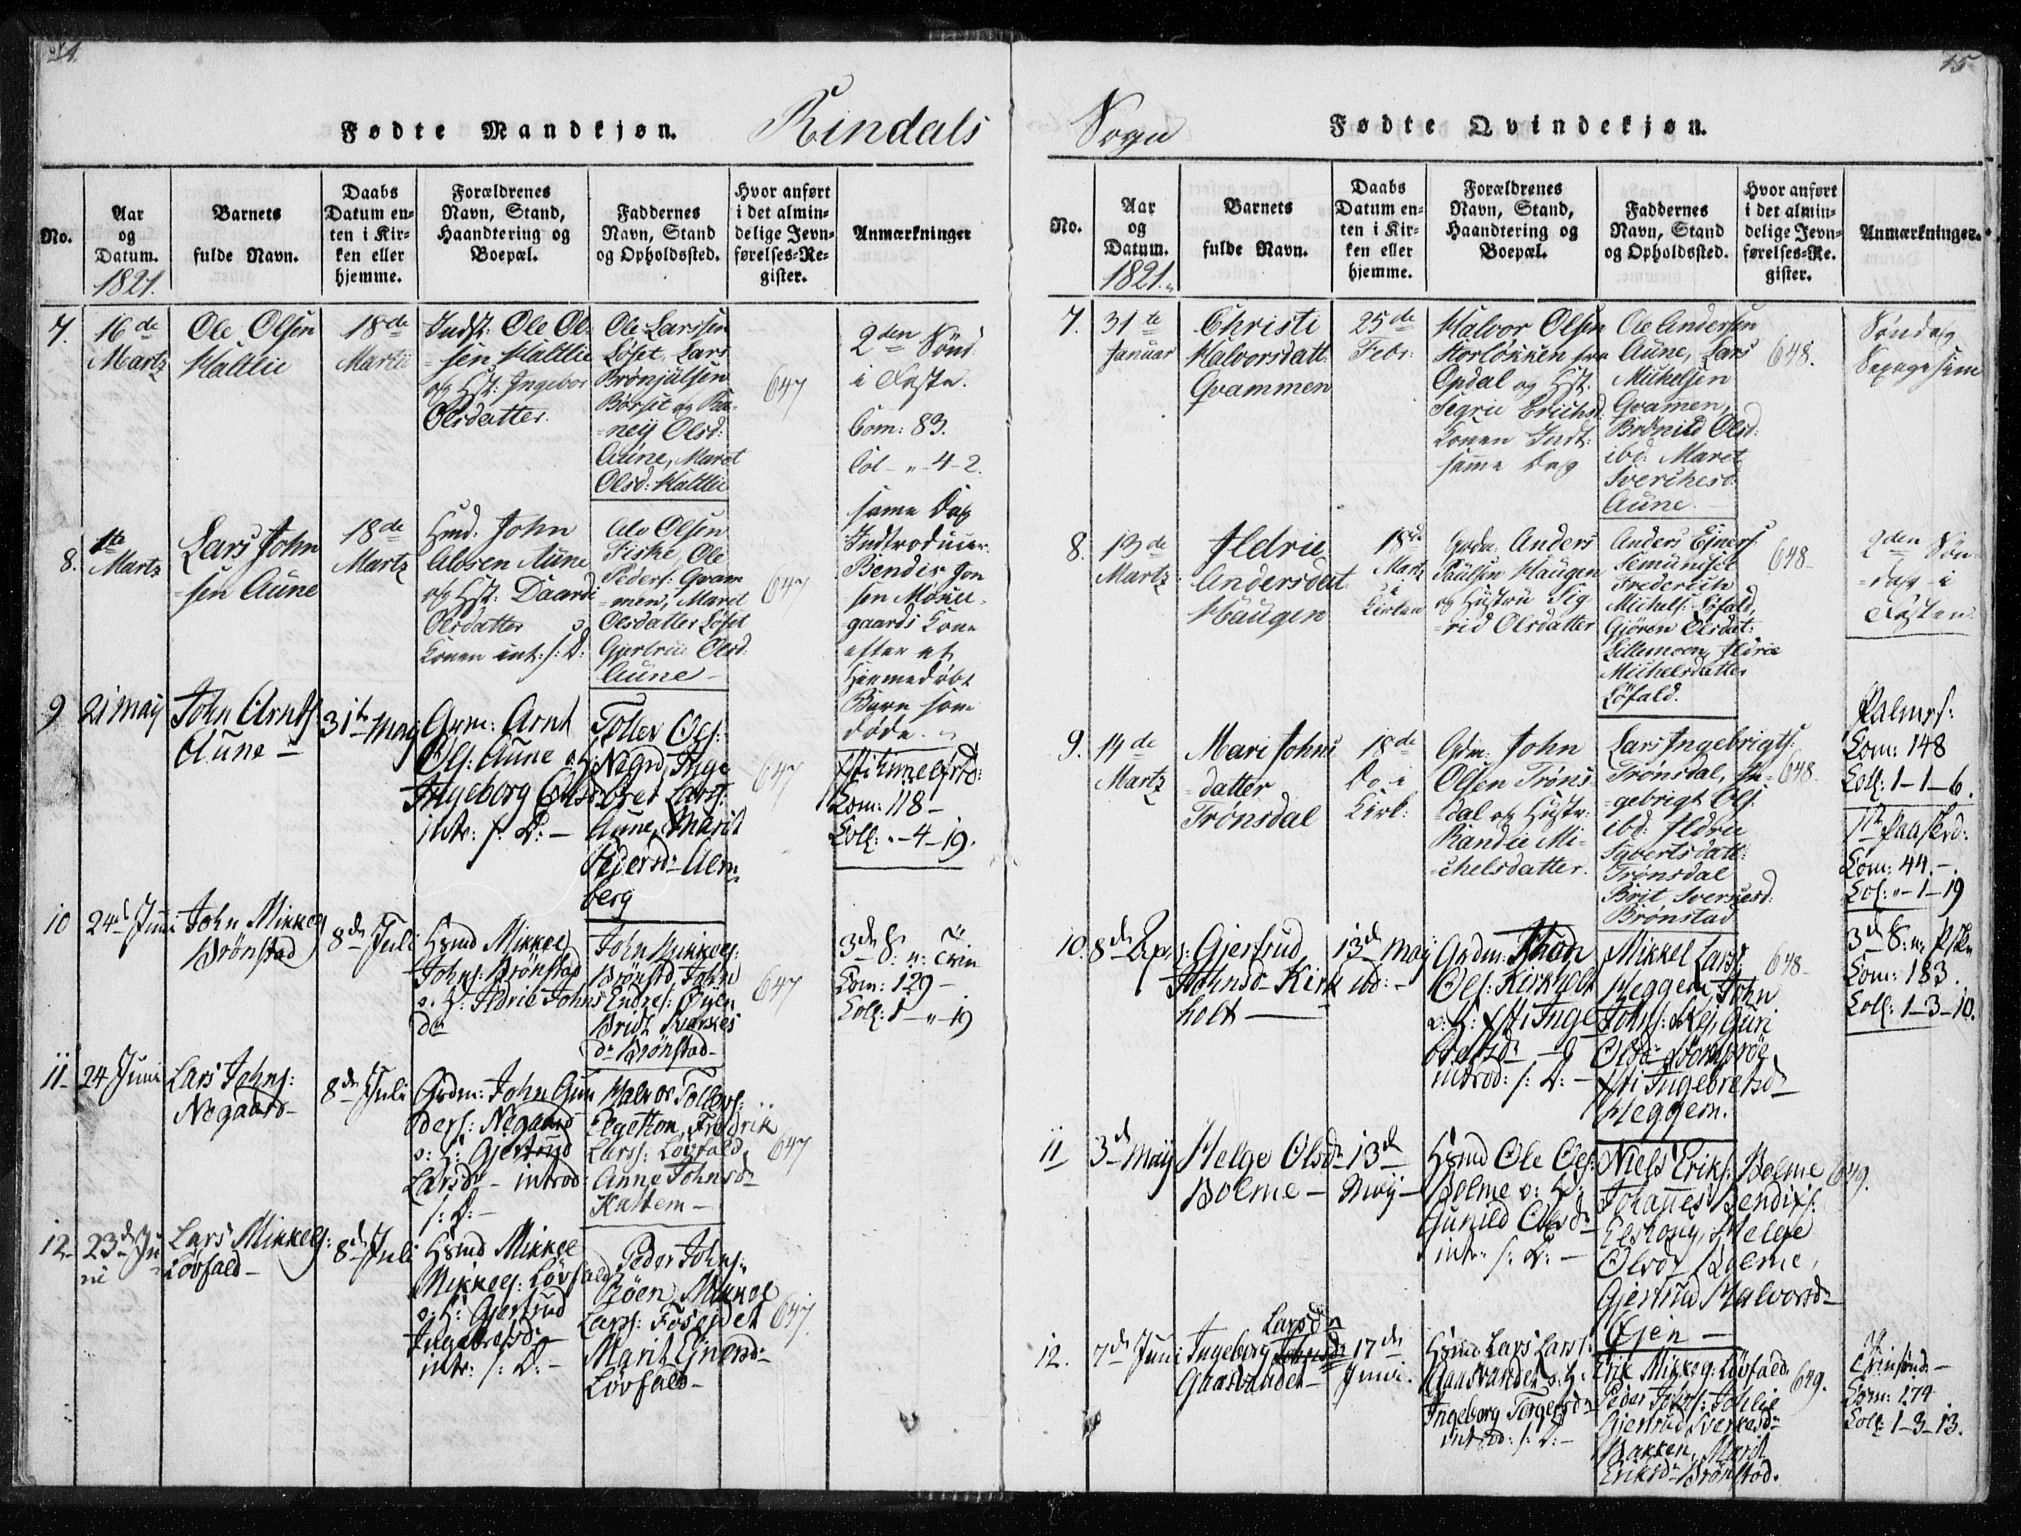 15
Rindals Sogn
Fødte Mandkjøn.
No.
Aar
og
Datum.
1821.
Barnets
fulde Navn.
Daabs
Datum en-
ten i Kir-
ken eller
hjemme.
Forældrenes
Navn, Stand,
Haandtering og
Boepæl.
Faddernes
Navn, Stand
og Opholdssted.
Hvor anført
i det almin-
delige Jevn-
førelses-Re-
gister.
Anmærkninger
7.
16de
Martz
Ole Olsen
Haltlie
18de
Martii
Indst: Ole Ol-
sen Haltlie
og Hst. Ingebor
Olsdatter.
Ole Larssen
Løset, Lars
Brønjulsen
Børset og
Olsd:
Aune, Maret
Olsd: Haltlie
647
2den Sønd
i Faste.
Com: 83.
Col - " 4 - 2.
8.
1te
Martz
Lars John
sen Aune
18de
Martz
Hmd. John
Alosen Aune
og Hst. Daardi
Olsdatter
Konen int: s: D:
Ole Olsen
Fiske, Ole
Peders: Qvam
men, Maret
Olsdatter Løset
Gjertrue Olsd:
Aune
647
same Dag
Indtroducer:
Bendix Jon
sen Moue-
gaards Kone
efter et
Hiemmedøbt
Barn som
døde.
9
21 Maij
John Arnts
Aune
31te Maij
Grm: Arnt
Ols: Aune o: H:
Ingeborg Olsd:
intr: s: D:
Toller Ols:
Negrd, Inge
bret Lars:
Aune, Marit
Pedersd: Alm
berg
647
Xsti himmelfrtd:
Kom: 118
Koll: " - 4 - 19.
10
24d Juni
John Mikkels
Brønstad
8de Juli
Hsmd Mikkel
Johns: Brønstad
o: H: Ildrie Johns
dr
John Mikkels:
Brønstd, John
Endres: Øyen
Bridt
dr Brønstad
647
3de S: n: Trin
Kom: 129
Koll: 1 - " - 19
11
24 Juni
Lars Johns:
Negaard
8de Juli
Grdm: John Gun
ders: Negaard
o: H: Gjertrud
Larsdr introd:
s: D:
Halvor Tollefs:
Elgetton, Fredrik
Larss: Løvfald,
Anne Johnsdr
Kattem
647
12
23de Ju
ni
Lars Mikkels:
Løvfald
8de Juli
Hsmd Mikkel
Mikkels: Løvfald
o: H: Gjertrud
Ingebretsdr
intr: s: D:
Peder Johns:
Bøen, Mikkel
Larss: Foseidet
Marit Ejnersdr
Løvfald
647
Fødte Qvindekjøn.
No.
Aar
og
Datum.
1821.
Barnets
fulde Navn.
Daabs
Datum en-
ten i Kir-
ken eller
hjemme.
Forældrenes
Navn, Stand,
Haandtering og
Boepæl.
Faddernes
Navn, Stand
og Opholdssted.
Hvor anført
i det almin-
delige Jevn-
førelses-Re-
gister.
Anmærkninger.
7.
31te
Januar
Christi
Halvorsdatt
Qvammen
25de
Febr:
Halvor Olsen
Storløkken fra
Opdal og Hst.
Segrie Erichsd:
Konen Indt:
samme Dag
Ole Andersen
Aune, Lars
Michelsen
Qvamen,
Brønild Olsd:
ibd: Maret
Sverchesd:
Aune
648.
Søndag
Sexagesima
8.
13de
Martz
Ildrie
Andersdat
Haugen
18de
Martz
i
Kirken
Grdm: Anders
Paulsen Haugen
og Hustru Sig-
rid Olsdatter
Anders Ejners:
Semundset
Frederich
Michels: Løfald,
Gjøren Olsdat:
Lillemoen, Ildrie
Michelsdatter
Løfald.
648
2den Søn-
dag i
Fasten
9.
14de
Martz
Mari Johns
datter
Trønsdal
18de
Do i
Kirk:
Gdm: John
Olsen Trøns-
dal og Hustr:
Randie Mi-
chelsdatter.
Lars Ingebrigts:
Trønsdal, In-
gebrigt Ols:
ibd: Ildrie
Sivertsdatt:
Trønsdal
Brit Sverkesd:
Brønstad
648
Palmes:
Kom: 148
Koll: 1 - 1 - 6.
1ste Paaskd:
Kom: 44.
Kol: " - 1 - 19
10.
8de Apr:
Gjertrud
Johnsd Kirk
holt
13de Maij
ibd:
Grdm:
Ols: Kirkholt
o: H: Xsti Inge
bretsdr
introd: s: D:
Mikkel Lars:
Heggem, John
Johs: Skei, Guri
Olsdr
Xsti Ingebretsdr
Heggem.
648
3de S: n: Pske
Kom: 183.
Koll: 1 - 3 - 10.
11
3de Maij
Helge Olsdr
Bolme
13de
Maij
Hsmd Ole Ols:
Bolme o: H:
Gunild Olsdr
intr: s: D:
Niels Eriks: Bolme
Johannes Bendix:
Elshoug, Helge
Olsdr Bolme,
Gjertrud Halvorsdr
Øjen
649.
12.
7de Juni
Ingeborg Larsdr
Gaasvandet
17de
Junii.
Hsmd Lars Lars:
Gaasvandet o: H:
Ingeborg Torgersdr
introd: s: D:
Erik Mikkels: Løvfald
Peder Johs:
Gjertrud Sverkesdr
Bakken, Marit
Eriksdr Brønstad.
649.
Trinsønd
Kom: 174
Koll: 1 - 3 - 13.